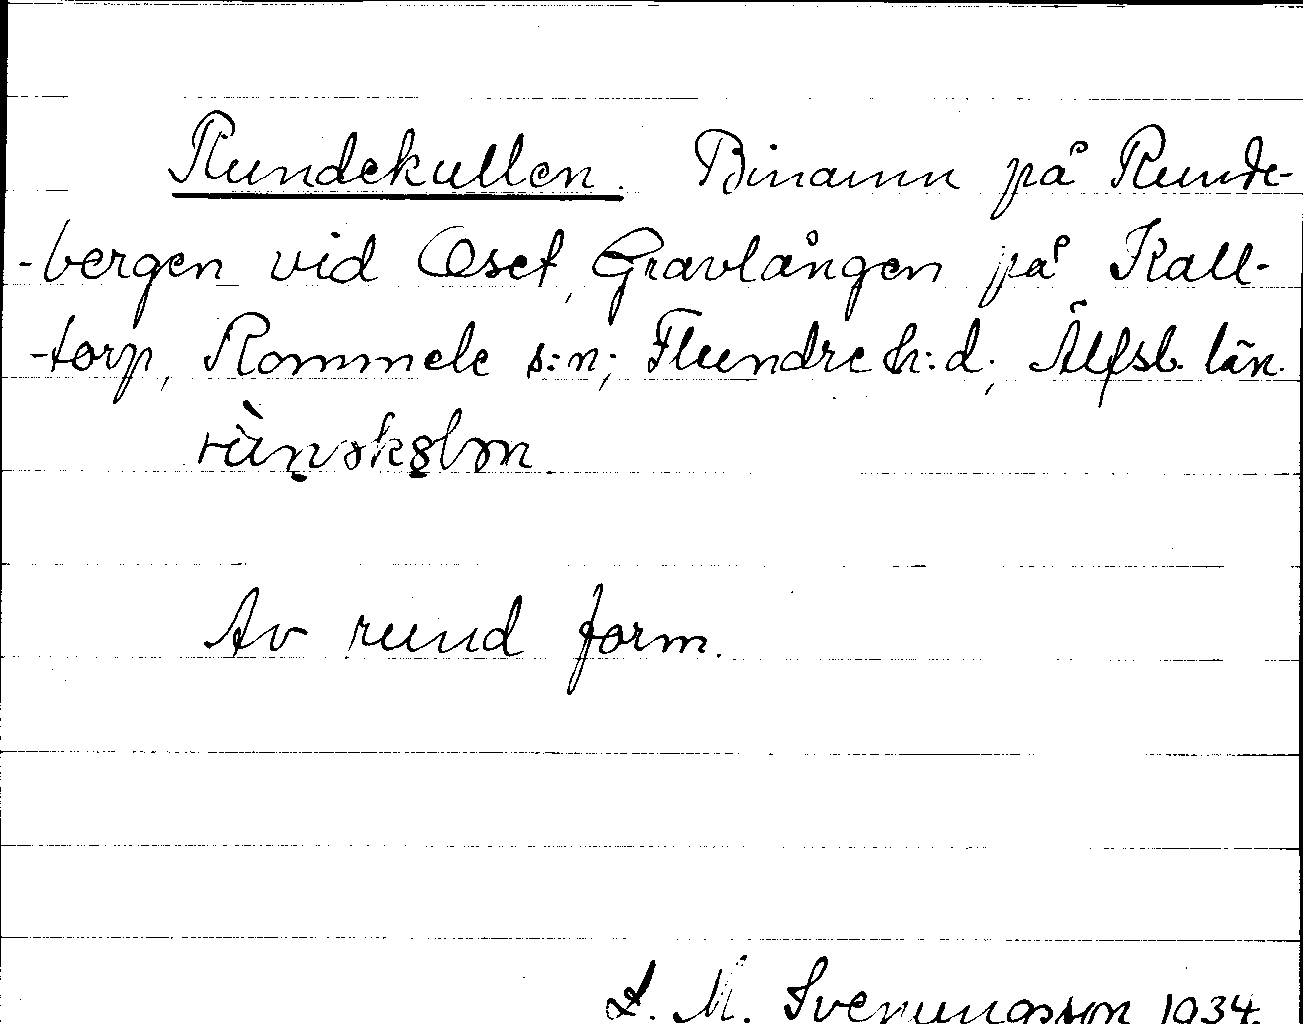 Rundekullen. Binamn på Runde-
-bergen vid Oset, Gravlången på Kall-
-torp, Rommele s:n; Flundre h:d; Älfsb. län.
rùn̥əko̥lən
Av rund form.
L. M. Svenungsson 1934.